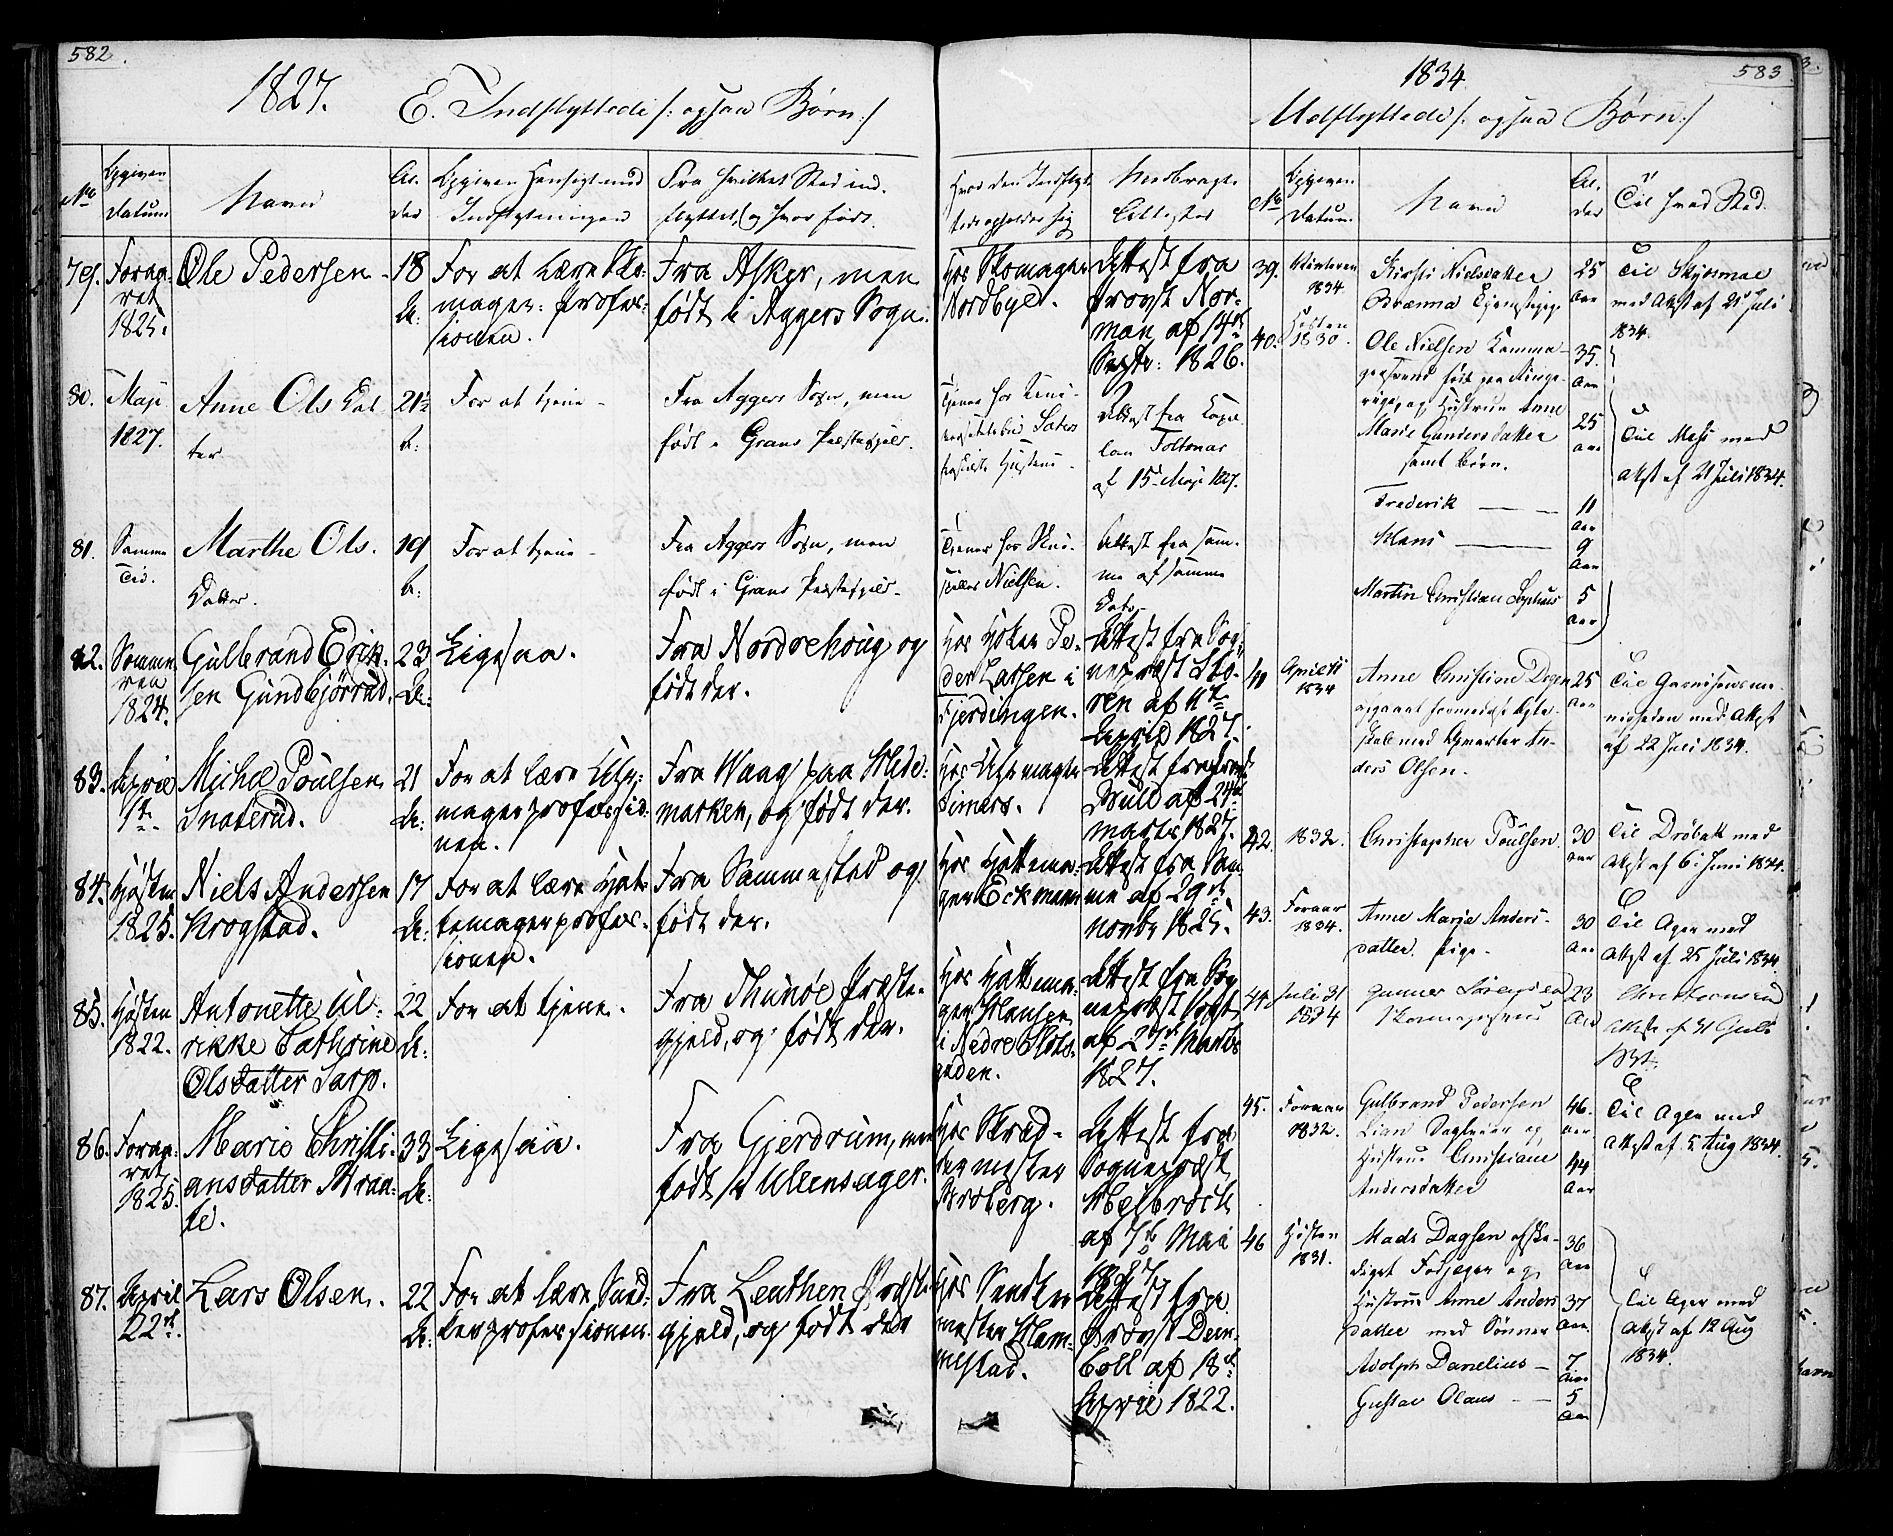 582.
1827.
E. Indflyttede /: ogsaa Børn :/
No
Opgiven Datum
Navn
Alder
Opgiven Hensigt med Indflytningen
Fra hvilket Sted indflyttet, og hvor født.
Hvor den Indflyttede opholder sig
Medbragte Attester
79. Foraaret 1825. Ole Pedersen 18 A: For at lære Skomager-Profes-sionen. Fra Asker, men født i Aggers Sogn. Hos Skomager Nordbye. Attest fra Provst Norman af 14de Septr: 1826.
80. Maji 1827. Anne Olsdatter 21½ A: For at tjene Fra Aggers Sogn, men født i Grans Præstegjeld. Attest fra Capellan Foltmar af 15de Maji 1827.
81. Samme Tid. Marthe Ols Datter. 19 A: For at tjene Fra Aggers Sogn, men født i Grans Præstegjeld. Tjener hos Nielsen. Attest fra samme af samme Dato
82. Sommeren 1824. Gulbrand Eriksen Gundbjørrud. 23 A: Ligesaa. Fra Nordrehoug og født der. Hos Høker Peder Larsen i Fjerdingen. Attest fra Sognepræst Støren af 11te April 1827.
83. April 1te Michel Poulsen Snaterud. 21 A: For at lære Uhrmagerprofessionen. Fra Waag paa Hedemarken, og født der. Hos Uhrmager Simers. Attest fra Provst Wulf af 24de Marts 1827.
84. Høsten 1825. Niels Andersen Krogstad. 17 A: For at lære Hattemagerprofessionen. Fra Sammested og født der. Hos Hattemager Eckmann Attest fra Samme af 29de Novbr 1825.
85. Høsten 1822. Antonette Ulrikke Cathrine Olsdatter Sarp. 22 A: For at tjene. Fra Thunøe Præstegjeld, og født der. Hos Hattemager Hansen i Nedre Slotsgaden. Attest fra Sognepræst Vogt af 27de Marts 1827.
86. Foraaret 1825. Marie Christiansdatter Kraafe. 33 A: Ligesaa. Fra Gjerdrum, men født i Ullensager. Hos Skrædermester Broberg. Attest fra Sognepræst Hesselbroch af 7de Mai 1827.
87. April 22de. Lars Olsen. 22 A: For at lære Snedkerprofessionen. Fra Leuthen Præstegjeld, og født der Hos Snedkermester Hammelstad. Attest fra Provst Demboll af 18de April 1822.
1834
583
Udflyttede /: ogsaa Børn :/
No
Opgiven Datum.
Navn
Alder
Til hvad Sted.
39. Winteren 1834. Kirsti Nielsdatter Brænna Tjenestepige 25 Aar Til Skjesmoe med Attest af 21de Juli 1834.
40. Høsten 1830. Ole Nielsen 35. Aar født paa Ringerige, og Hustrue Anne Marie Gundersdatter 25 Aar samt Børn. Til Moss med Attest af 21 Juli 1834.
Frederik 11 Aar
Hans 9 Aar
Martin Christian Sophus 5 Aar
41 April 1834 Anne Christine Degen 25 Aar Ægteskab med Qvarter Anders Olsen. Til Garnisonsmenigheden med Attest af 22 Juli 1834.
42. 1832. Christopher Poulsen. 30 Aar Til Drøbak med Attest af 6 Juni 1834.
43. Foraar 1834. Anne Marie Andersdatter. Pige. 30 Aar Til Ager med Attest af 25 Juli 1834.
44. Juli 31 1834 Gunner Sørensen Skomagersvend 23 Aar Christiansund Attest af 31 Juli 1834.
45. Foraar 1832. Gulbrand Pedersen Lian Dagleier og 46. Aar Hustrue Christiane Andersdatter 44 Aar Til Ager med Attest af 5 Aug 1834.
46 Høsten 1831. Mads Dagsen afskediget Fodjæger og 36 Aar Hustrue Anne Andersdatter med Sønner 37 Aar. Til Ager med Attest af 12 Aug 1834.
Adolph Danelius 7 Aar
Gustav Olaus 5 Aar